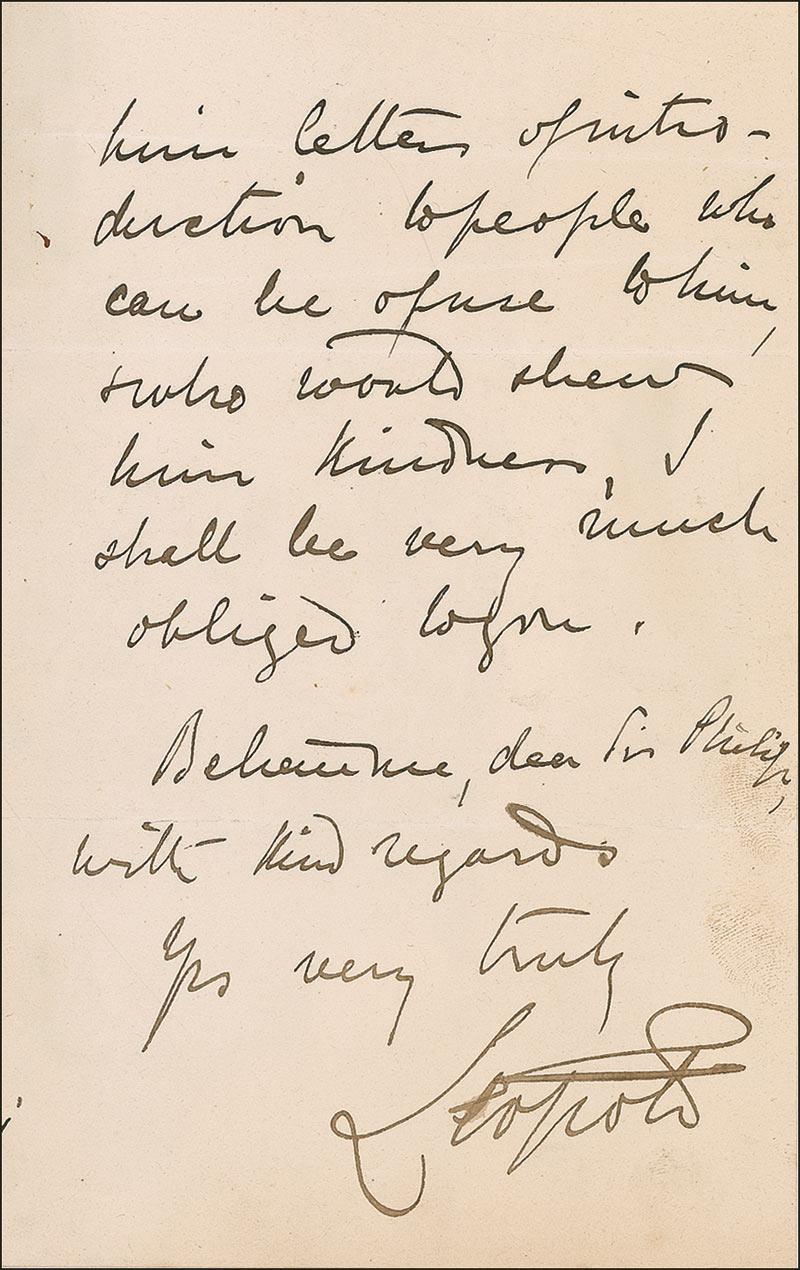 him letters of intro-
duction to people who
can be of use to him,
& who would shew
him kindness, I
shall be very much
obliged to you.
Believe me, dear Sir Philip,
with kind regards
Yrs very truly
Leopold